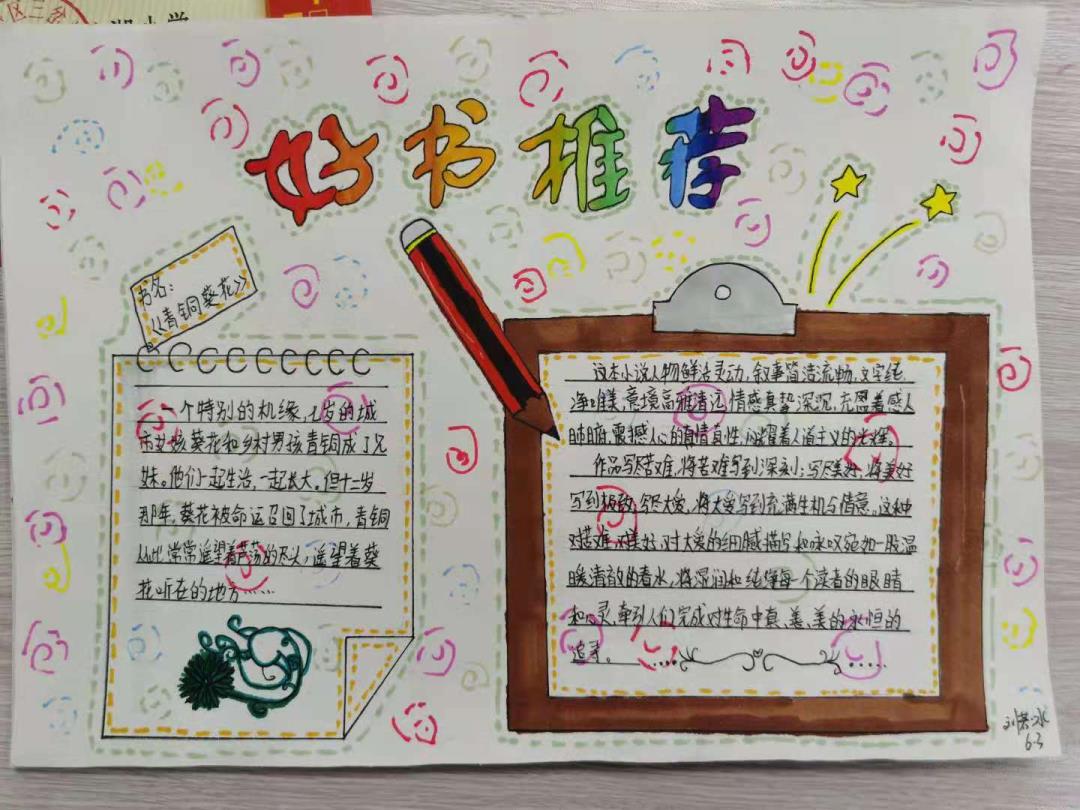 湖小学
好书推荐
书名:
《青铜葵花》
一个特别的机缘,七岁的城
市女孩葵花和乡村男孩青铜成了兄
妹。他们一起生活,一起长大。但十二岁
那年,葵花被命运召回了城市,青铜
从此常常遥望着芦荡的尽头,遥望着葵
花所在的地方……
这本小说人物鲜活灵动,叙事简洁流畅,文字纯
净唯美,意境高雅清远,情感真挚深沉,充盈着感人
肺腑,震撼人心的真情真性,闪耀着人道主义的光辉。
作品写尽苦难,将苦难写到深刻;写尽美好,将美好
写到极致;写尽大爱,将大爱写到充满生机与情意。这本中
对苦难、对美好、对大爱的细腻描写和咏叹宛如一股温
暖清澈的春水,将湿润和纯净每个读者的眼睛
和心灵,牵引人们完成对生命中真、善、美的永恒的
追寻。
6.3